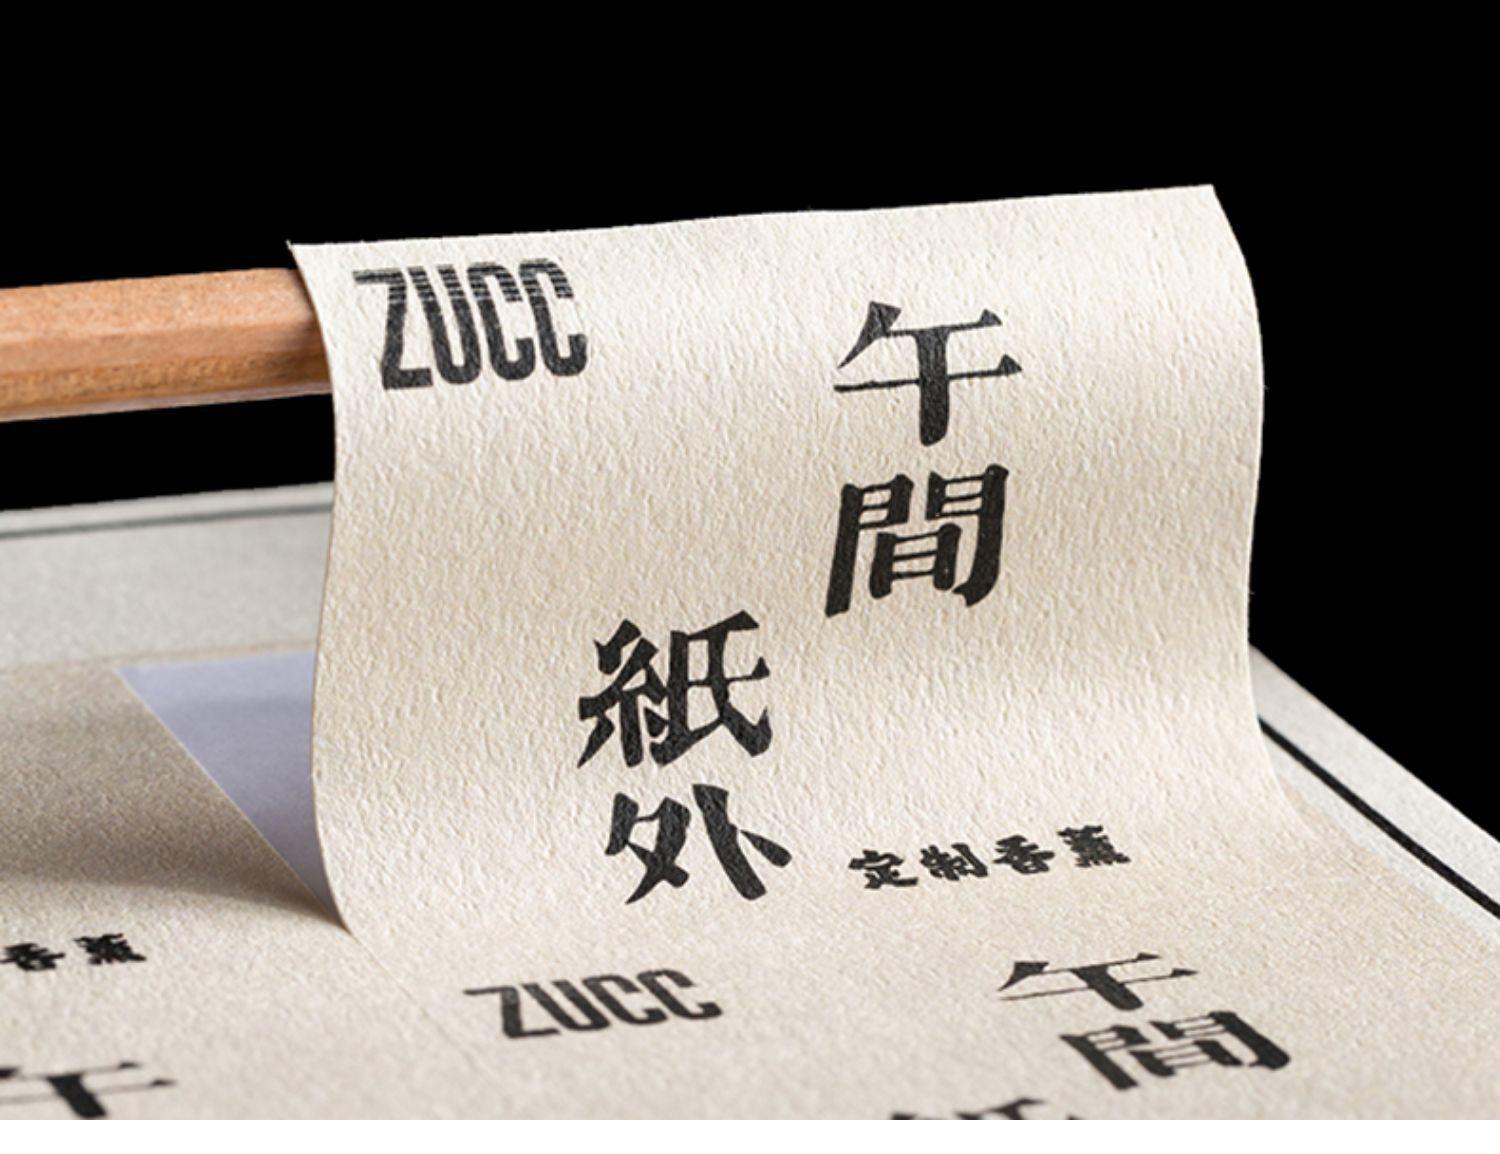 ZUCC
午間
紙外
定制香薰
香薰
ZUCC
午間
午
紙